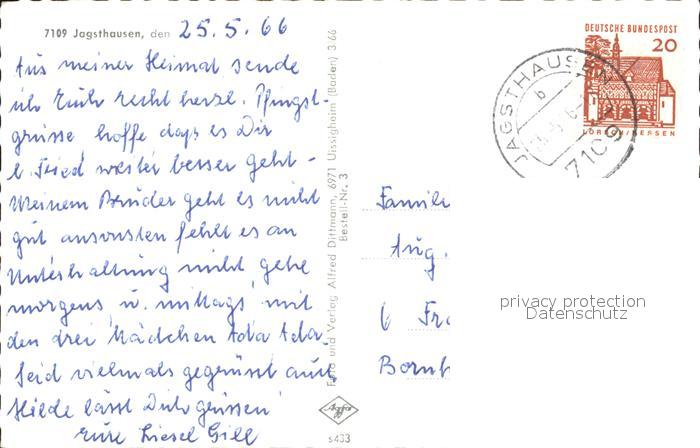 7109 Jagsthausen, den 25.5.66
Aus meiner Heimat sende
ich Euch recht herzl. Pfingst-
grüsse hoffe dass es Dir
l. Fried weiter besser geht -
Meinem Bruder geht es nicht
gut ansonsten fehlt es an
Unterhaltung nicht gehe
morgens u. mittags mit
den drei Mädchen Ada Ada.
Seid vielmals gegrüsst auch
Hilde lässt Dich grüssen
Eure Liesel Gill
Foto und Verlag Alfred Dittmann, 6971 Uissigheim (Baden) 3 66
Bestell-Nr. 3
Agfa
s433
DEUTSCHE BUNDESPOST
20
LORSCH/HESSEN
JAGSTHAUSEN
b
7109
Famili
Aug.
6 Fr
Bornh
privacy protection
Datenschutz